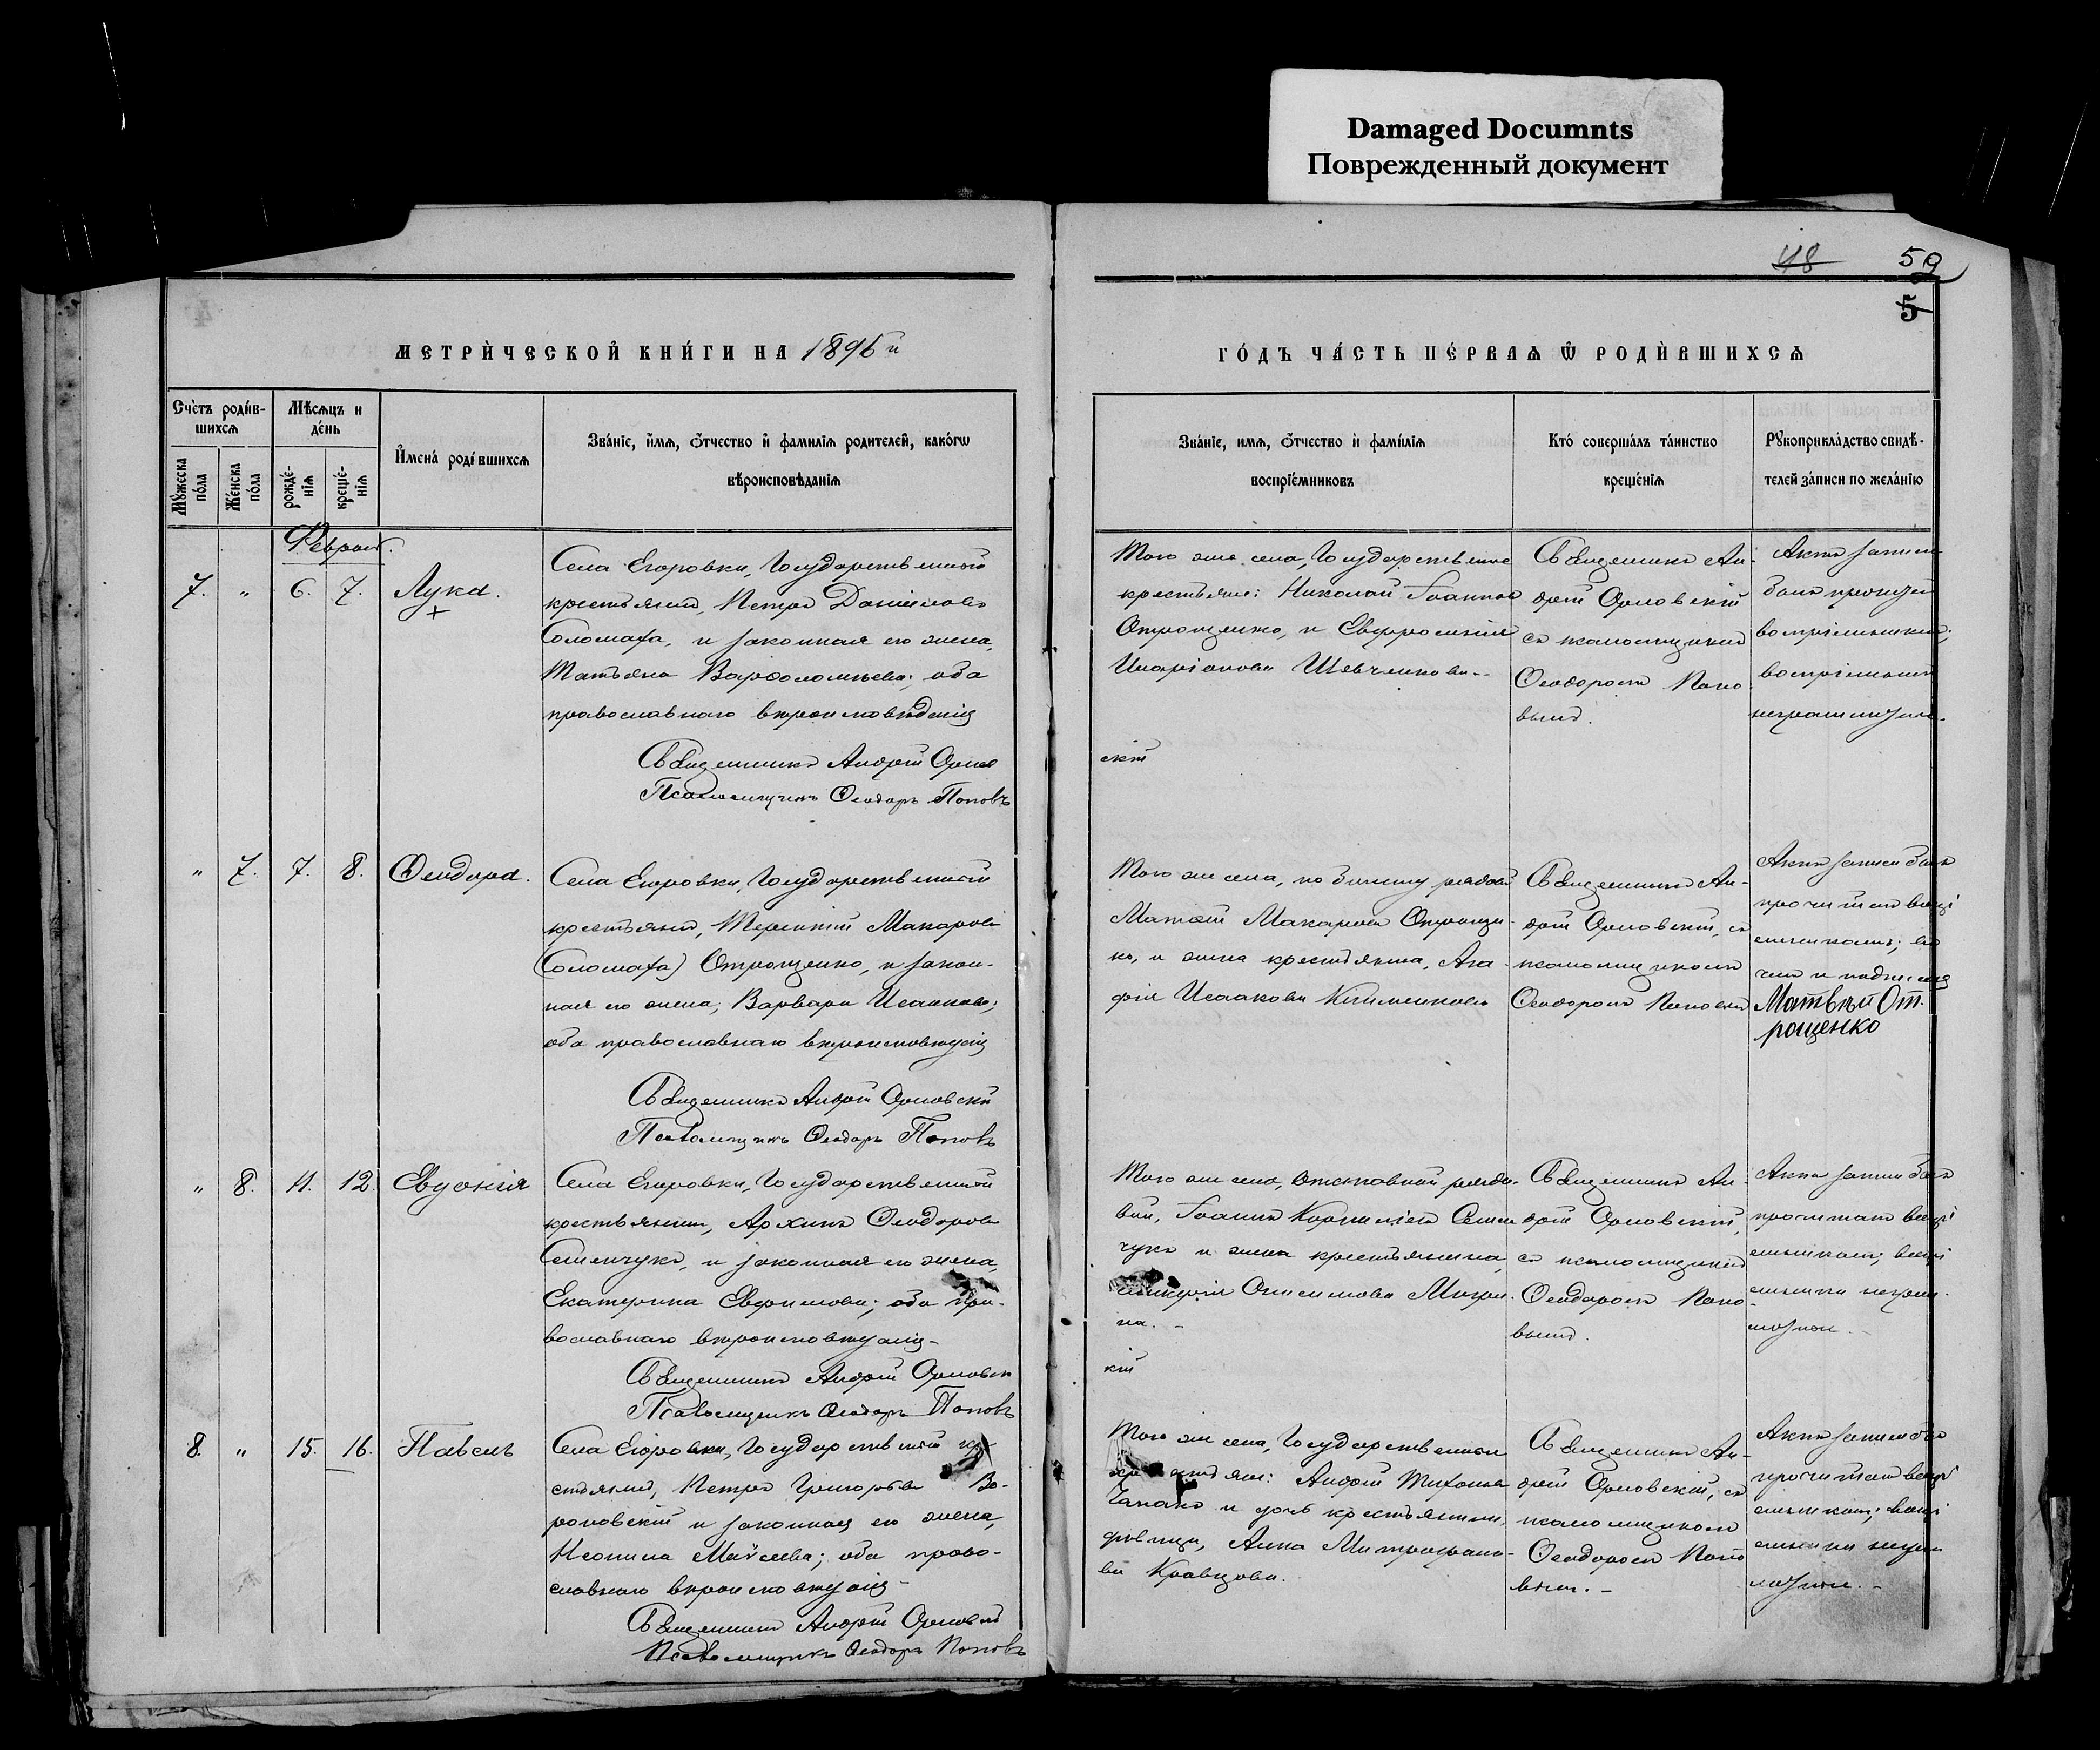 Damaged Documnts
Поврежденный документ
48 59
5
МЕТРИ́ЧЕСКОЙ КНИ́ГИ НА 1896 й
ГО́ДЪ ЧА́СТЬ ПЕ́РВАѦ Ѿ РОДИ́ВШИХСѦ
Счетъ роди́в-
шихсѧ
Мꙋ́жеска по́ла
Же́нска по́ла
Мѣ́сѧцъ и де́нь
рожде́-нїѧ
креще́-нїѧ
И҆мена́ роди́вшихсѧ
Зва́нїе, и҆́мѧ, ѻ҆́тчество и҆ фами́лїѧ роди́телей, како́гѡ
вѣроисповѣ́данїѧ
Зва́нїе, имѧ, ѻ҆́тчество и҆ фами́лїѧ
воспрїе́мниковъ
Кто́ соверша́лъ та́инство
креще́нїѧ
Рꙋкоприкла́дство свидѣ́-
телей за́писи по жела́нїю
Феврал.
7. " 6. 7. Лука.
Села Егоровки, Государственный
крестьянин, Петръ Даніиловъ
Соломаха, и законная его жена,
Татьяна Варѳоломѣева; оба
православнаго вѣроисповѣданія
Священникъ Андрей Орлов
Псаломщикъ Ѳеодоръ Поповъ
Того же села, Государственные
крестьяне: Николай Іоаннов
Отрощенко, и Евфросинія
Иларіонова Шевченкова.
скій
Священникъ Ан-
дрей Орловскій
съ псаломщикомъ
Ѳеодоромъ Попо-
вымъ.
Актъ записи
былъ прочитан
воспріемникам;
воспріемники
неграмотные.
" 7. 7. 8. Ѳеодора.
Села Егоровки, Государственный
крестьянин, Терентій Макаровъ
(Соломаха) Отрощенко, и закон-
ная его жена, Варвара Исаакова;
оба православнаго вѣроисповѣданія
Священникъ Андрей Орловскій
Псаломщикъ Ѳеодоръ Поповъ
Того же села, по билету рядовой
Матѳей Макаровъ Отрощен-
ко, и жена крестьянина, Ага-
фія Исаакова Клименкова
Священникъ Ан-
дрей Орловскій, съ
псаломщикомъ
Ѳеодоромъ Поповым
Актъ записи былъ
прочитанъ воспрі
емникамъ;
Матвѣй От.
рощенко
" 8. 11. 12. Евдокія
Села Егоровки, Государственный
крестьянин, Архипъ Ѳеодоровъ
Семенчукъ, и законная его жена,
Екатерина Евфимова; оба пра-
вославнаго вѣроисповѣданія
Священникъ Андрей Орловск
Псаломщикъ Ѳеодоръ Поповъ
Того же села, отставной рядо-
вой, Іоаннъ Корниліевъ Семен
чукъ и жена крестьянина,
Онисимова
на.
кій
Священникъ Ан-
дрей Орловскій,
съ псаломщикомъ
Ѳеодоромъ Попо-
вымъ.
Актъ записи былъ
прочитанъ воспрі
емникам; воспрі
емники негра-
мотные.
8. " 15. 16. Павелъ
Села Егоровки, Государственный кре-
стьянинъ, Петръ Григорьевъ Во-
роновскій и законная его жена,
Неонила Моѵсеева; оба право-
славнаго вѣроисповѣданія
Священникъ Андрей Орловскій
Псаломщикъ Ѳеодоръ Поповъ
Того же села, Государственный
Андрей Тихоновъ
и дочь крестьянина,
дѣвица, Анна Митрофано-
ва Кравцова.
Священникъ Ан-
дрей Орловскій, съ
псаломщикомъ
Ѳеодоромъ Попо
вым.
Актъ записи был
прочитанъ воспрі
емникам; воспрі
емники негра
мотные.